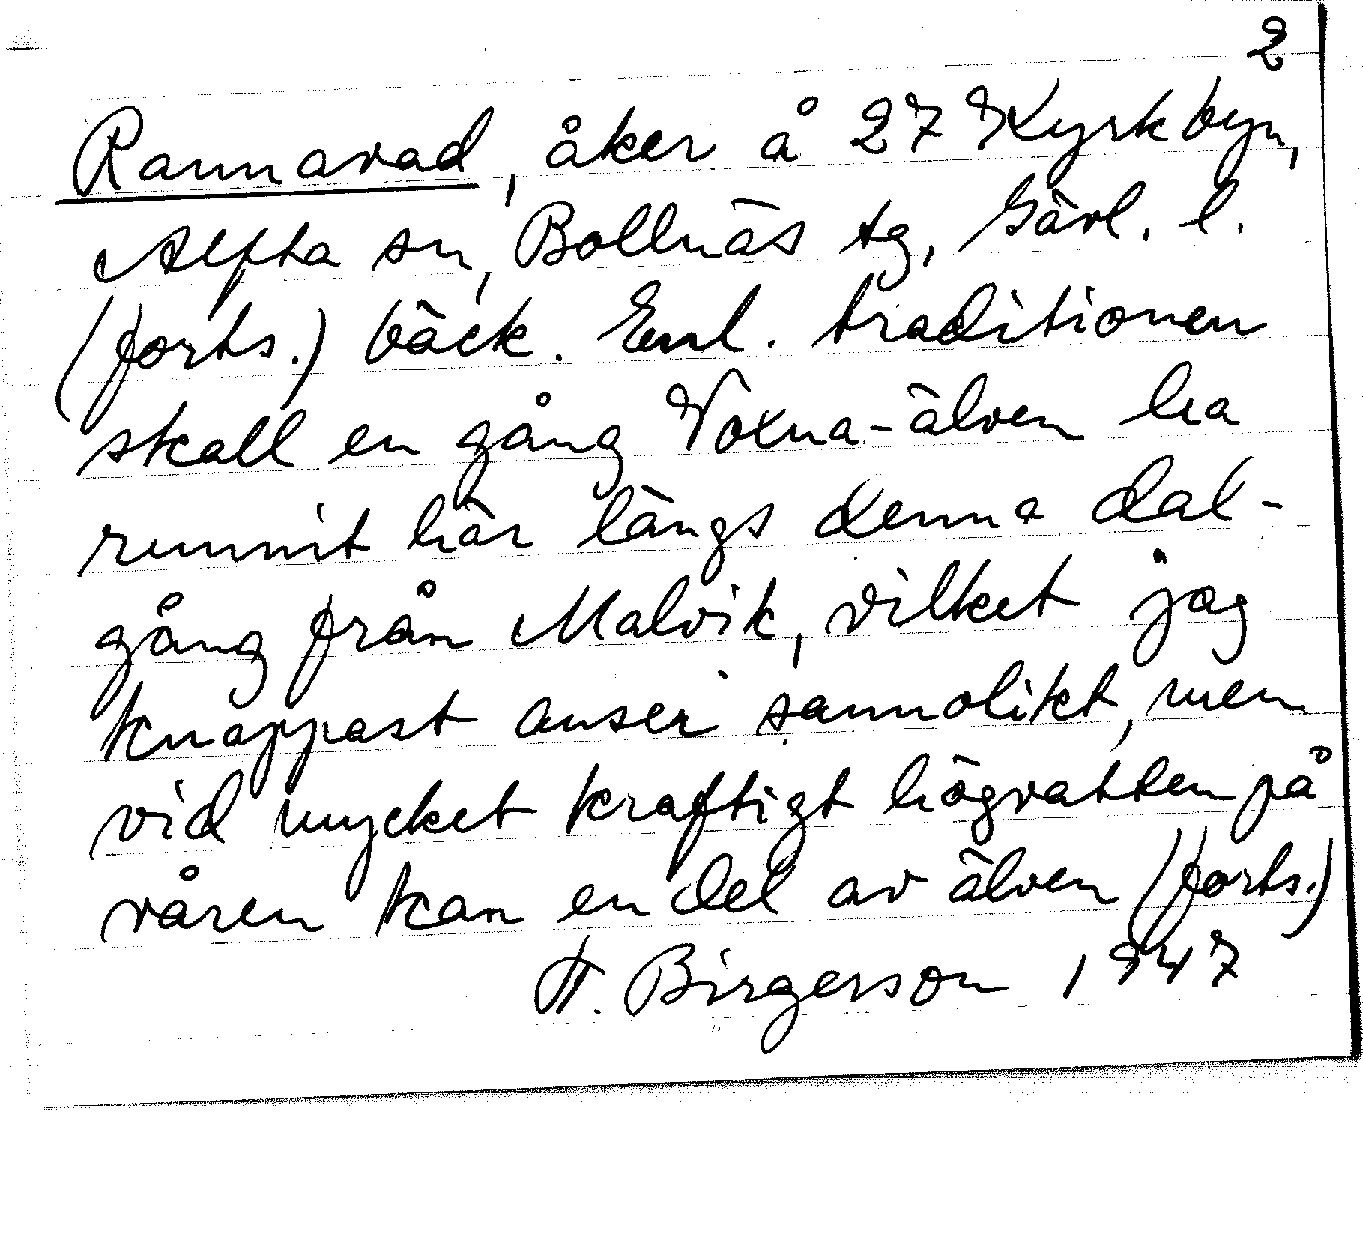 2
Rannavad, åker å 27 Kyrkbyn,
Alfta sn, Bollnäs tg, Gävl. l.
(forts.) bäck. Enl. traditionen
skall en gång Voxna-älven ha
runnit här längs denna dal-
gång från Malvik, vilket jag
knappast anser sannolikt, men
vid mycket kraftigt högvatten på
våren kan en del av älven (forts.)
H. Birgerson 1947